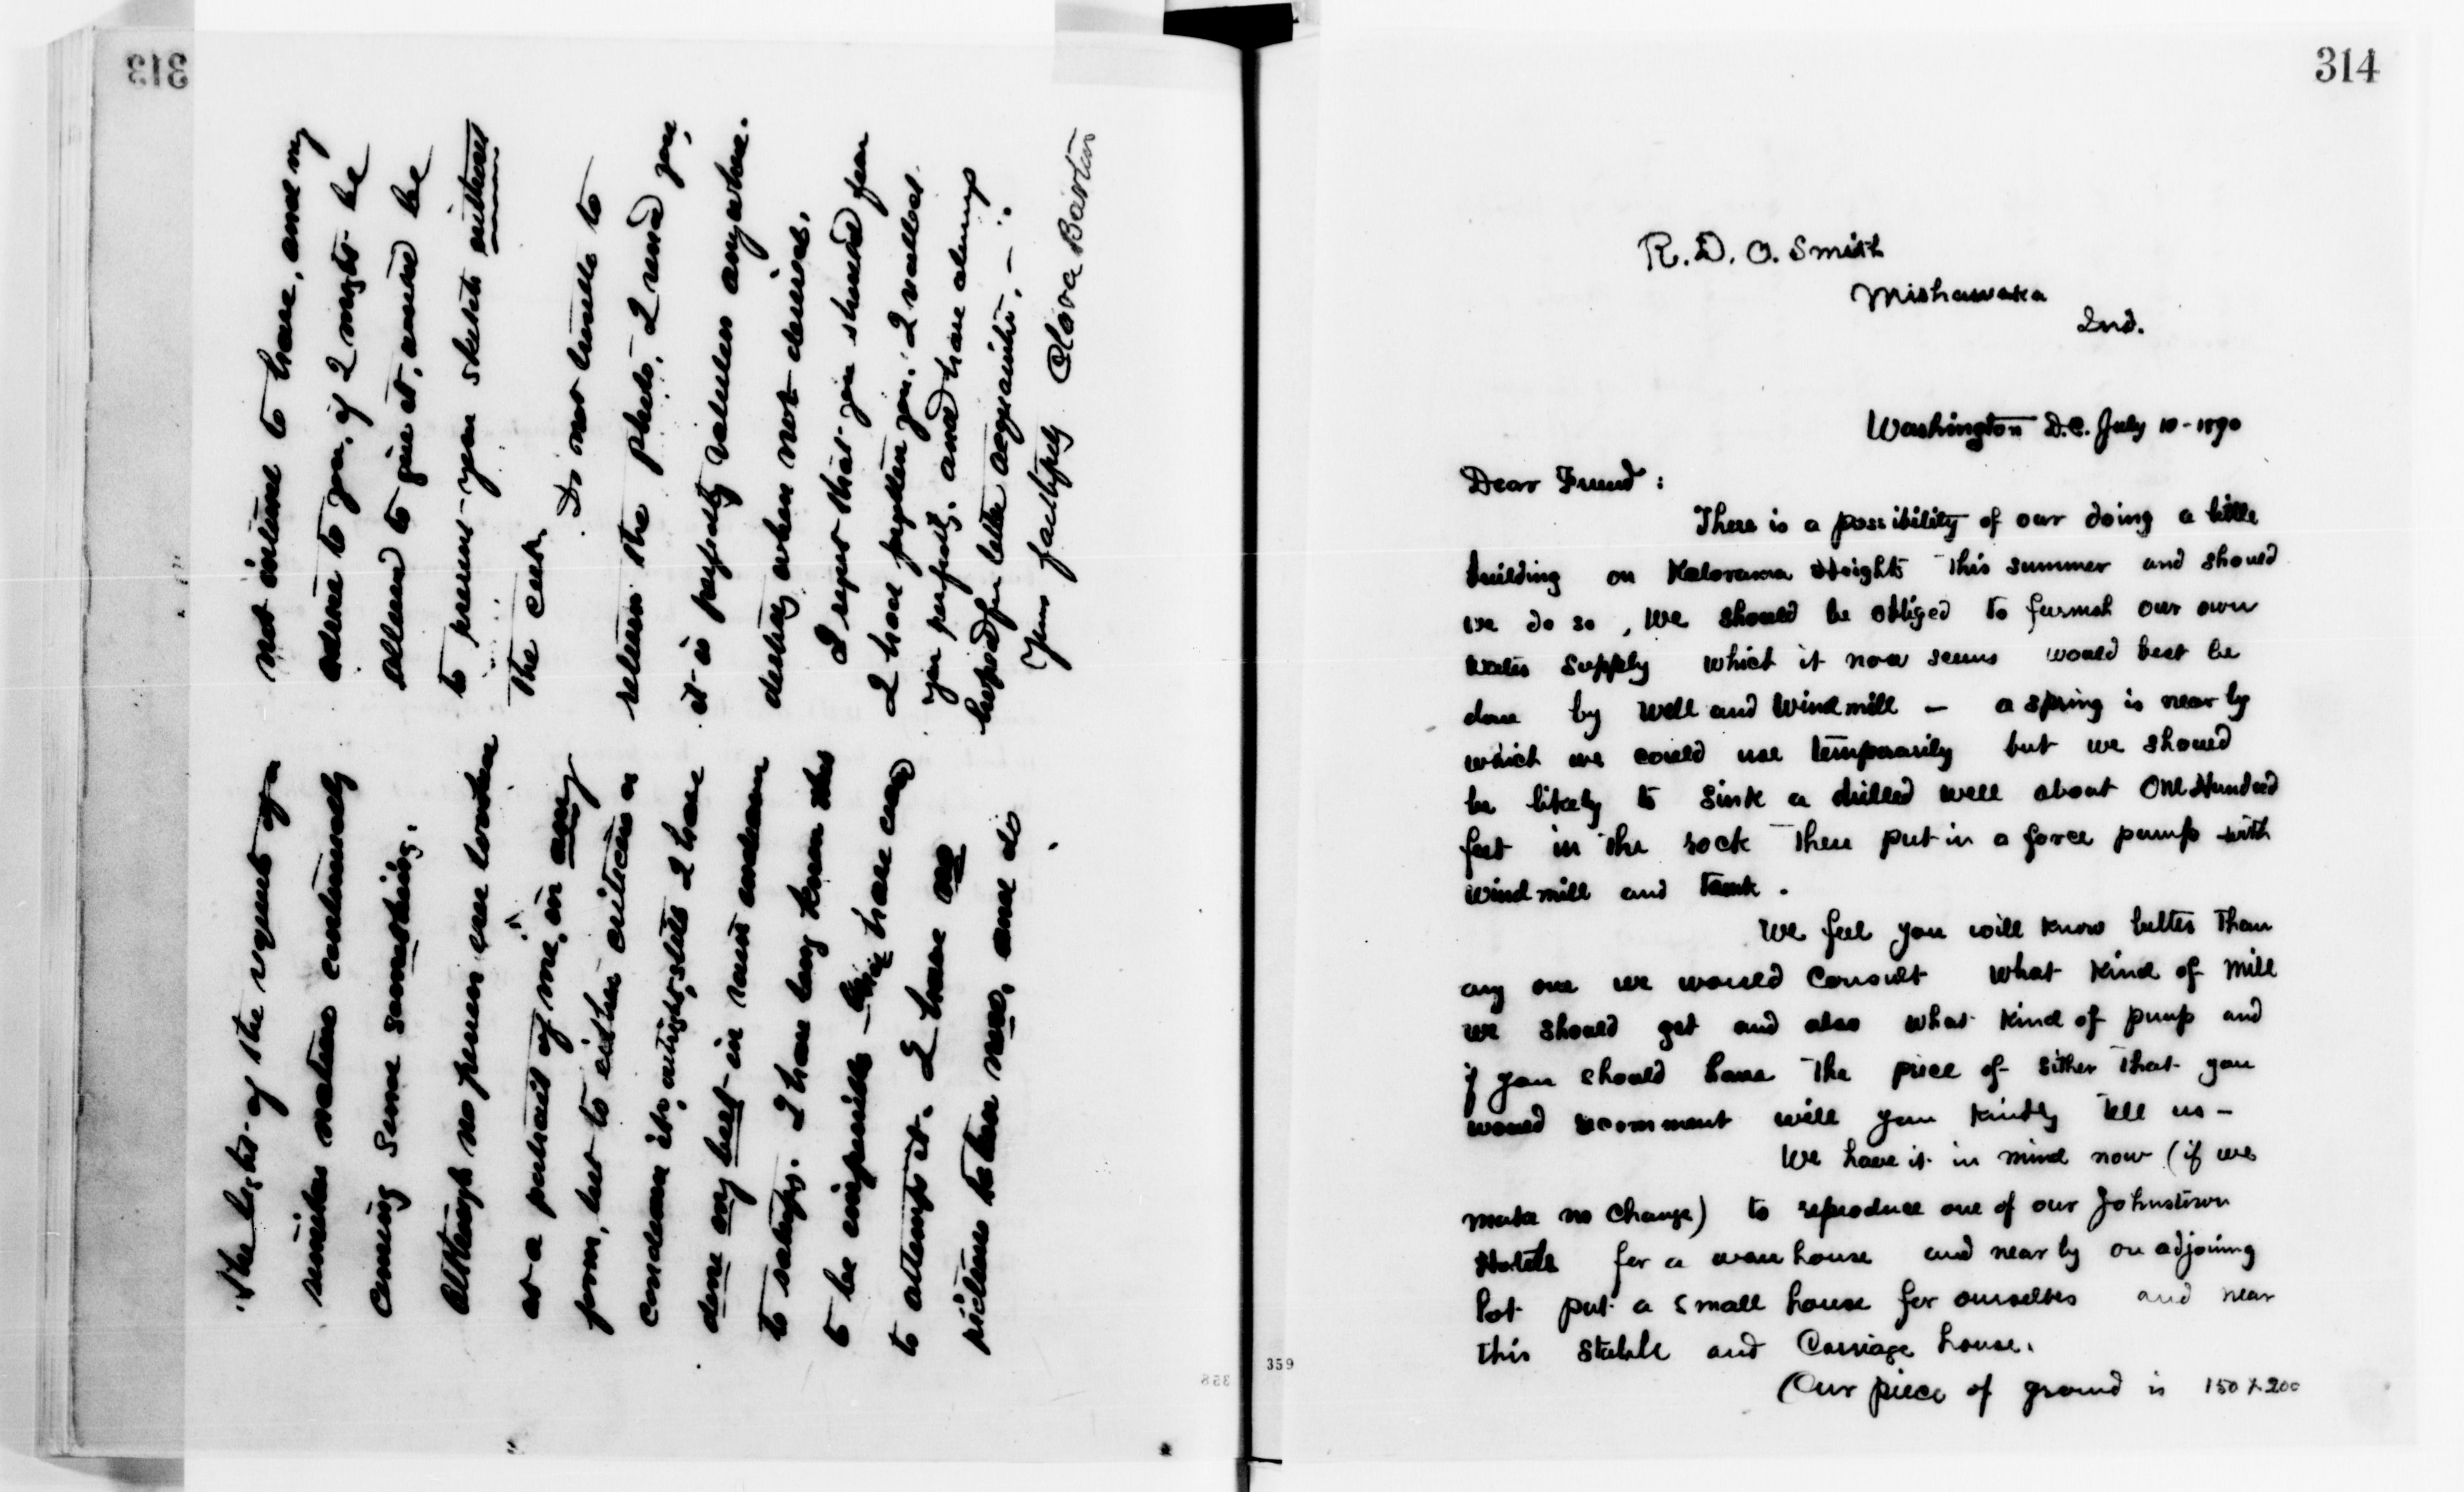 313
the light of the requests of a
similar nature continually
coming Some something.
Although no person ever looked
at a portrait of me, in any
form, but to either criticise or
condemn it outright, still I have
done my best in vain endeavor
to satisfy. I have long known this
to be impossible have
to attempt it. I have no
pictures taken now, and do
not intend to have, and my
advice to you, if I might be
allowed to give it, would be
to present your sketch without
the cut.
Do not trouble to
return the photo, I send you,
it is perfectly valueless anywhere.
destroy when not desired.
I regret that you should fear
I have forgotten you. I recollect
you perfectly, and have always
hoped for better acquaintance.
Yours faithfully Clara Barton
358
314
R. D. O. Smith
Mishawaka
Ind.
Washington D.C. July 10-1890
Dear Friend :
There is a possibility of our doing a little
building on Kalorama Heights this summer and should
we do so, we should be obliged to furnish our own
water supply which it now seems would best be
done by well and Windmill - a spring is near by
which we could use temporarily but we should
be likely to sink a drilled well about One Hundred
feet in the rock then put in a force pump with
wind mill and tank.
We feel you will know better than
any one we would consult what kind of mill
we should get and also what kind of pump and
if you should have the price of either that you
would recomment will you kindly tell us -
We have it in mind now (if we
make no change) to reproduce one of our Johnstown
Hotels for a ware house and near by on adjoining
lot put a small house for ourselves and near
this stable and Carriage house.
(Our piece of ground is 150 x 200
359